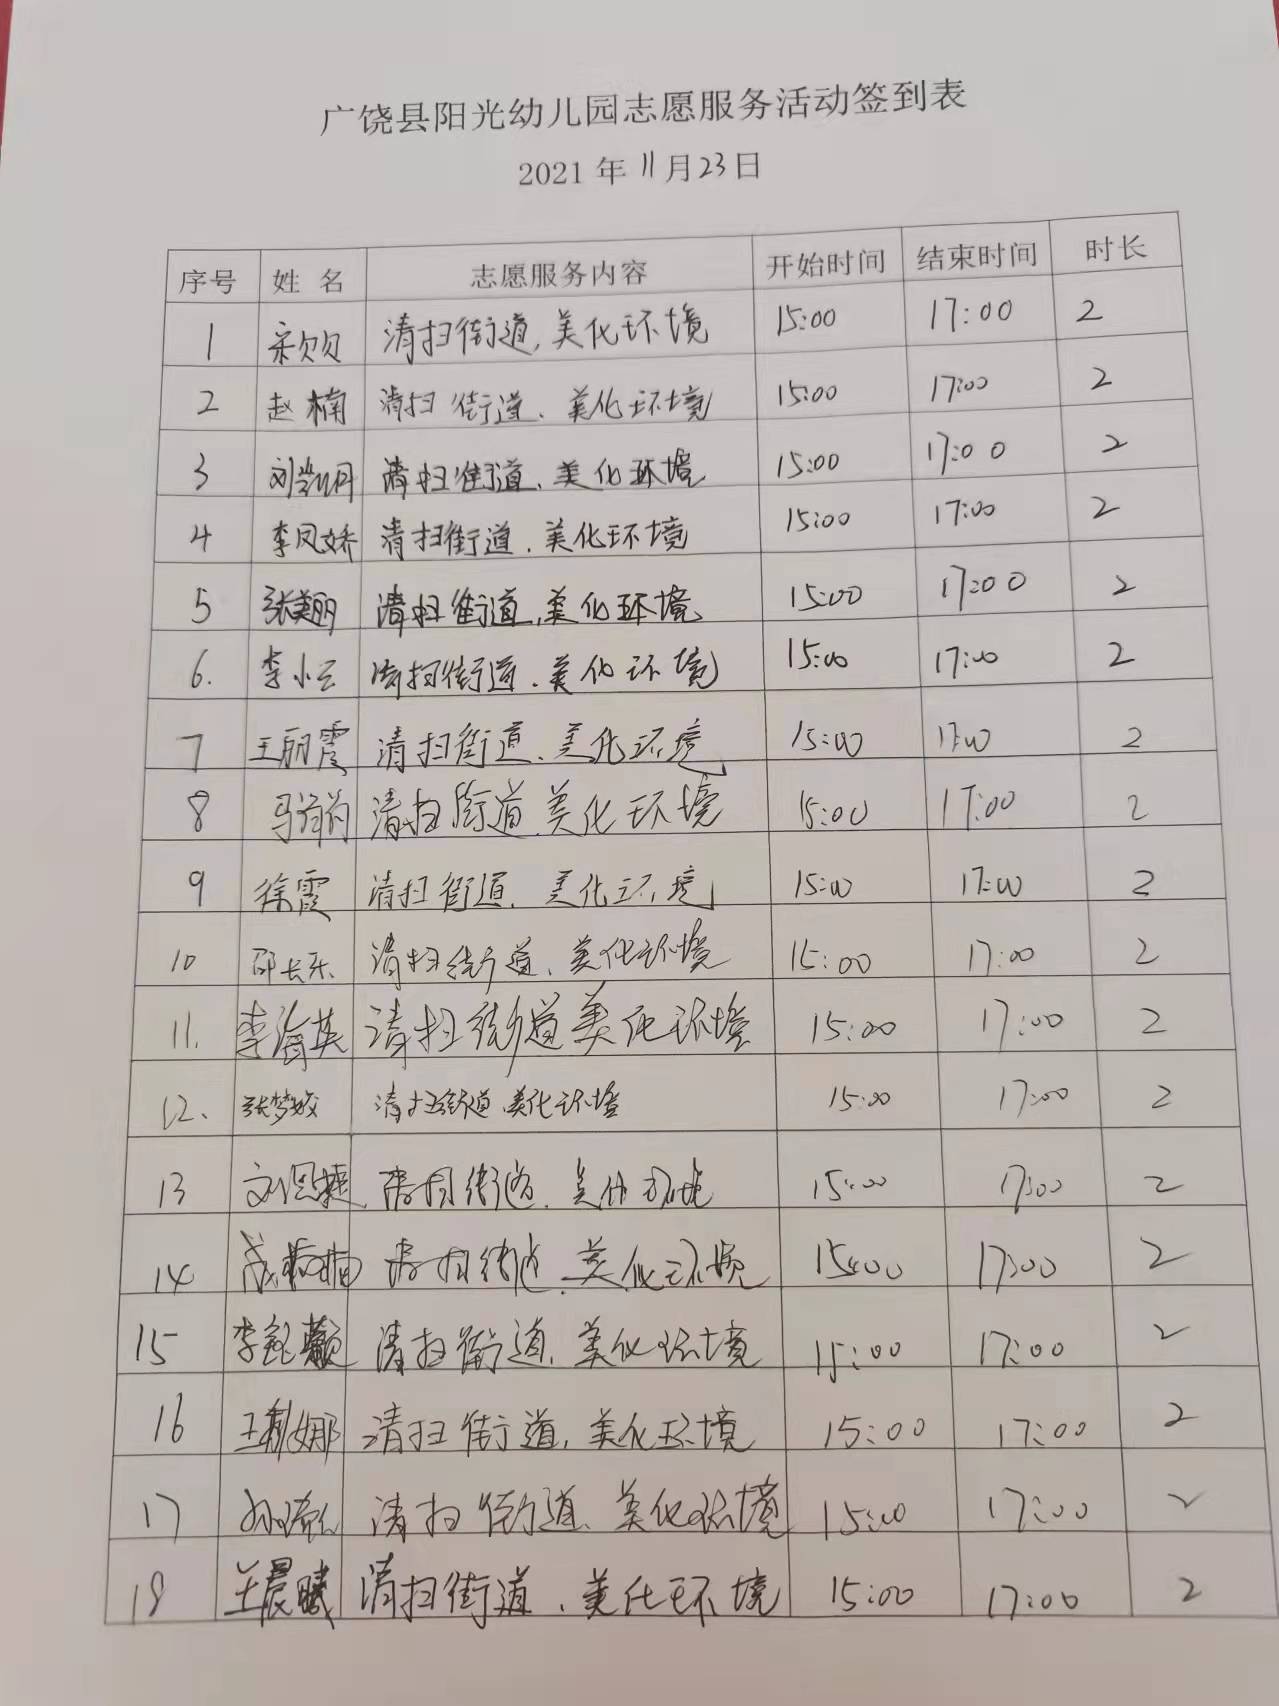 广饶县阳光幼儿园志愿服务活动签到表
2021 年 11 月 23 日
序号 姓 名 志愿服务内容 开始时间 结束时间 时长
1 清扫街道,美化环境 15:00 17:00 2
2 赵楠 清扫街道、美化环境 15:00 17:00 2
3 清扫街道、美化环境 15:00 17:00 2
4 李凤娇 清扫街道、美化环境 15:00 17:00 2
5 张美丽 清扫街道、美化环境 15:00 17:00 2
6. 李小云 清扫街道、美化环境 15:00 17:00 2
7 王丽霞 清扫街道、美化环境 15:00 17:00 2
8 清扫街道、美化环境 15:00 17:00 2
9 徐霞 清扫街道、美化环境 15:00 17:00 2
10 邵长乐 清扫街道、美化环境 15:00 17:00 2
11. 清扫街道美化环境 15:00 17:00 2
12. 张梦姣 清扫街道、美化环境 15:00 17:00 2
13 清扫街道、美化环境 15:00 17:00 2
14 清扫街道、美化环境 15:00 17:00 2
15 清扫街道、美化环境 15:00 17:00 2
16 清扫街道,美化环境 15:00 17:00 2
17 清扫街道、美化环境 15:00 17:00 2
18 王晨曦 清扫街道、美化环境 15:00 17:00 2